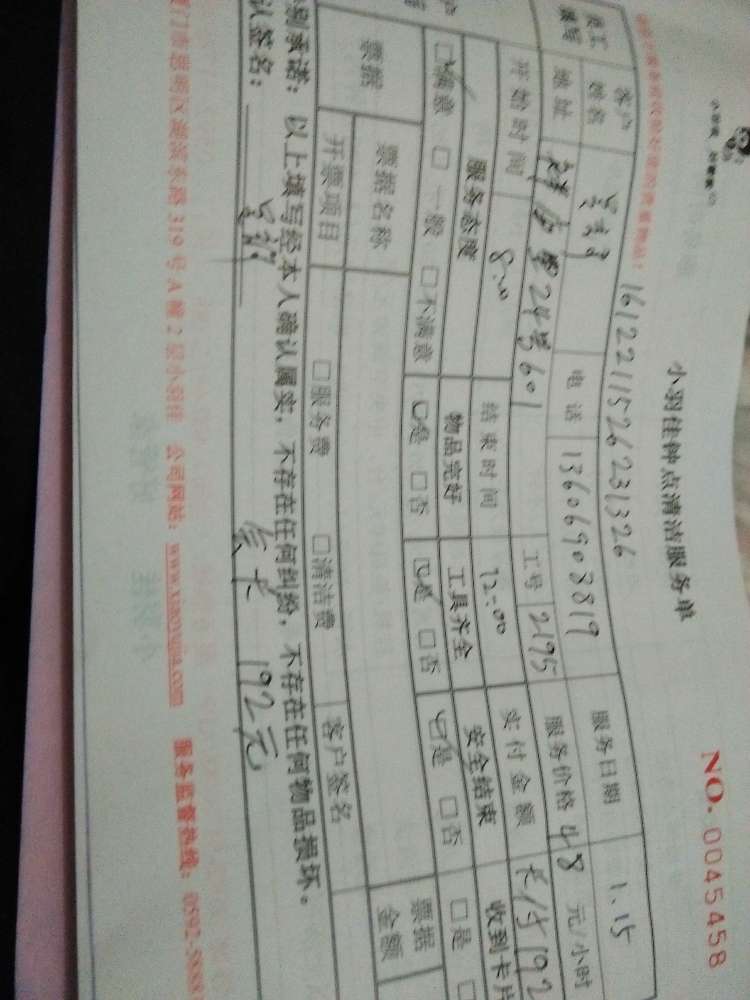 小羽佳钟点清洁服务单
NO. 0045458
1612211526231326
客户姓名 电话 13606903819 服务日期 1.15
员工填写 地址 24号601 工号 2195 服务价格 48 元/小时
开始时间 8:00 结束时间 12:00 实付金额 卡付192
服务态度 物品完好 工具齐全 安全结束 收到卡片
☑满意 □一般 □不满意 ☑是 □否 ☑是 □否 ☑是 □否 □是
票据 票据名称 票据金额
开票项目 □服务费 □清洁费 客户签名
承诺：以上填写经本人确认属实，不存在任何纠纷，不存在任何物品损坏。
认签名： 192元
门市思明区湖滨东路319号A幢2层小羽佳 公司网站：www.xiaoyujia.com 服务监督热线：0592-5888